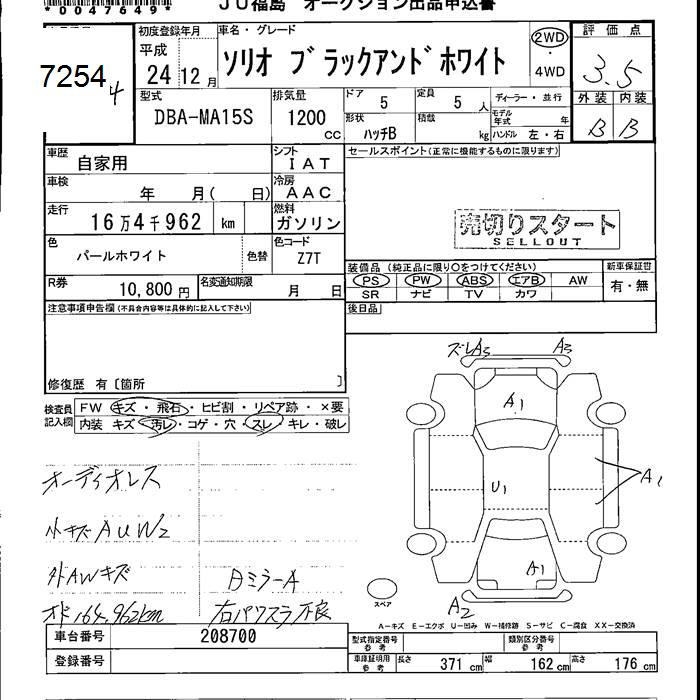 *0047649*
JU福島 オークション出品申込書
7254
4
初度登録年月
平成
24 12月
車名・グレード
ソリオ ブラックアンドホワイト
2WD
・
4WD
評価点
3.5
外装 内装
B B
型式
DBA-MA15S
排気量
1200
cc
ドア
5
定員
5人
形状
ハッチB
積載
kg
ディーラー・並行
モデル年式 年
ハンドル 左・右
車歴
自家用
シフト
IAT
セールスポイント(正常に機能するものに限ります)
車検
年 月( 日)
冷房
AAC
走行
16万4千962 km
燃料
ガソリン
売切りスタート
SELLOUT
色
パールホワイト
色替
色コード
Z7T
装備品(純正品に限り○をつけてください)
PS PW ABS エアB AW
SR ナビ TV カワ
新車保証書
有・無
R券
10,800円
名変通知期限
月 日
後日品
注意事項申告欄(不具合内容等は具体的に記入して下さい)
修復歴 有〔箇所 〕
検査員記入欄
FW キズ・飛石・ヒビ割・リペア跡・×要
内装 キズ・汚レ・コゲ・穴・スレ・キレ・破レ
オーディオレス
小キズAUW2
外AWキズ
オド164,962km
日ミラーA
右パワスラ不良
ズレA3
A3
A1
A1
U1
A1
A2
スペア
A−キズ E−エクボ U−凹み W−補修跡 S−サビ C−腐食 XX−交換済
車台番号
208700
登録番号
型式指定番号
参考
類別区分番号
参考
車庫証明用
参考
長さ 371cm
幅 162cm
高さ 176cm